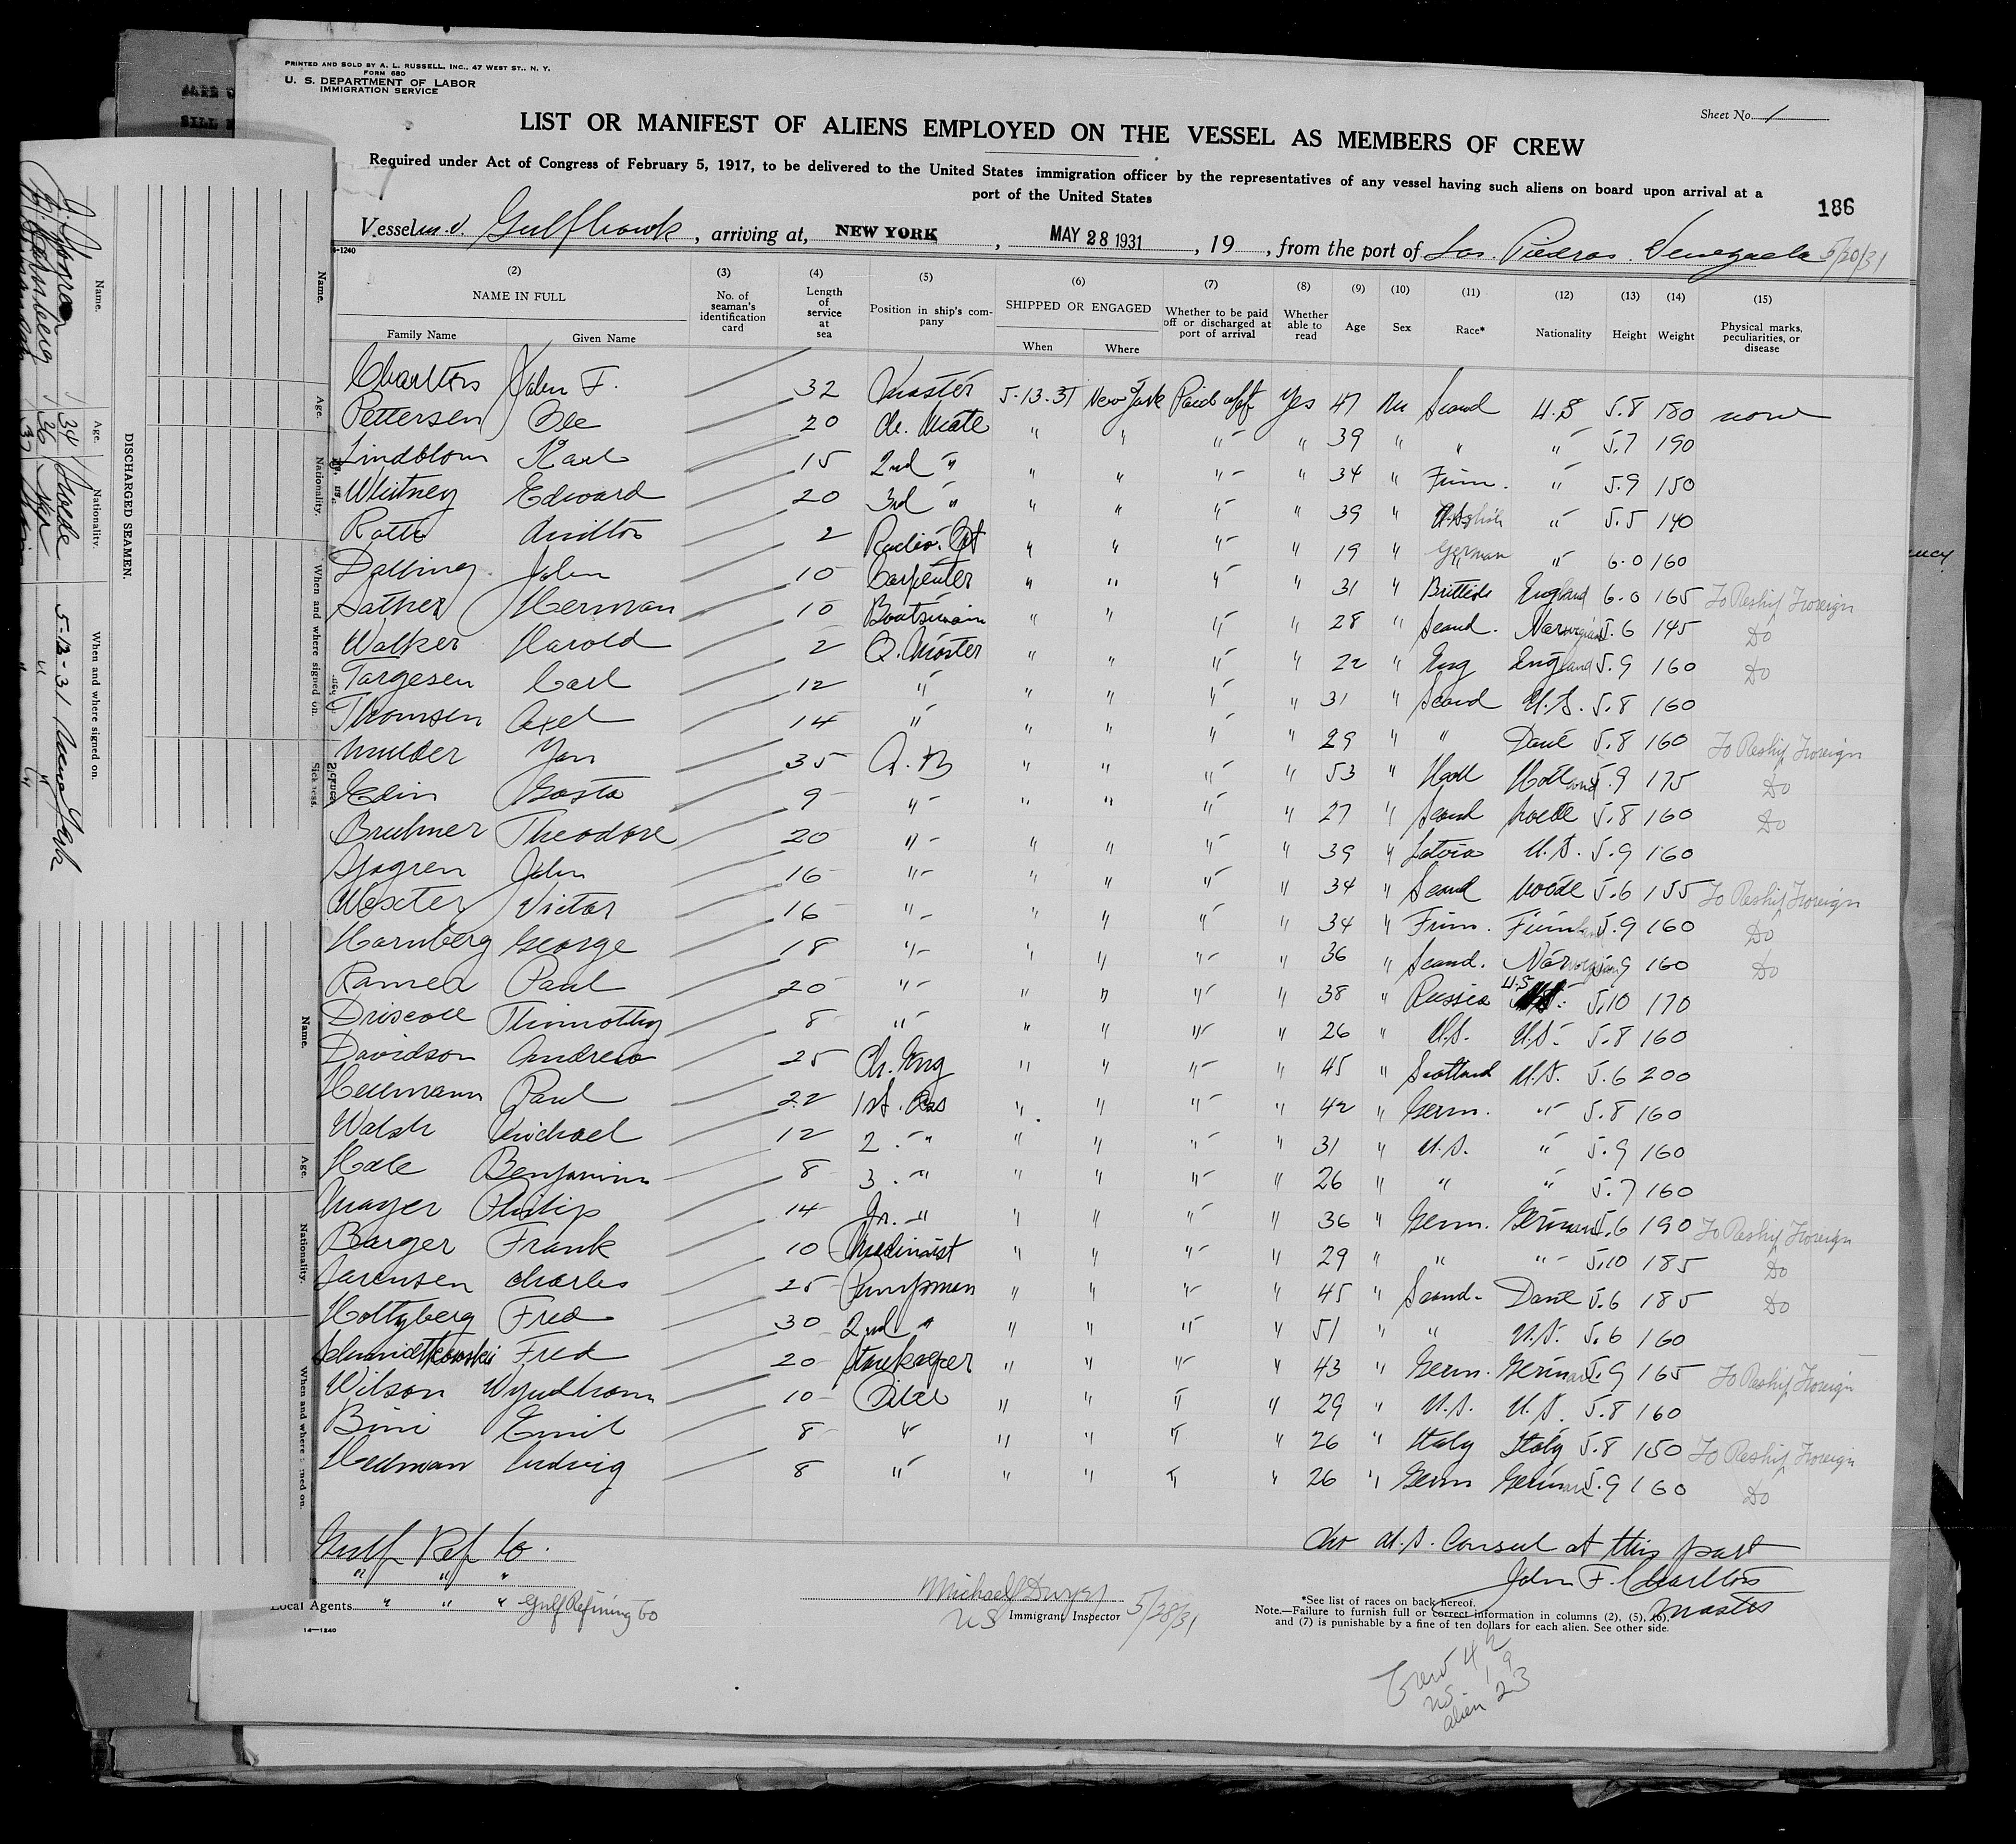 PRINTED AND SOLD BY A. L. RUSSELL, INC., 47 WEST ST., N. Y.
FORM 680
U. S. DEPARTMENT OF LABOR
IMMIGRATION SERVICE
Sheet No. 1
LIST OR MANIFEST OF ALIENS EMPLOYED ON THE VESSEL AS MEMBERS OF CREW
Required under Act of Congress of February 5, 1917, to be delivered to the United States immigration officer by the representatives of any vessel having such aliens on board upon arrival at a
port of the United States
186
Vessel m.v. Gulfhawk, arriving at, NEW YORK, MAY 28 1931, 19, from the port of Las Piedras Venezuela 5/20/31
(2) (3) (4) (5) (6) (7) (8) (9) (10) (11) (12) (13) (14) (15)
NAME IN FULL No. of seaman's identification card Length of service at sea Position in ship's company SHIPPED OR ENGAGED Whether to be paid off or discharged at port of arrival Whether able to read Age Sex Race* Nationality Height Weight Physical marks, peculiarities, or disease
Family Name Given Name When Where
Charlton John F. 32 Master 5-13-31 New York Paid off Yes 47 M Scand U.S 5.8 180 none
Pettersen Ole 20 Ch. Mate " " " " 39 " " " 5.7 190
Lindblom Karl 15 2nd " " " " " 34 " Finn. " 5.9 150
Whitney Edward 20 3rd " " " " " 39 " " 5.5 140
Roth Milton 2 Radio. Opt " " " " 19 " German " 6.0 160
Dalling John 10 Carpenter " " " " 31 " British England 6.0 165 To Reship Foreign
Sather Herman 10 Boatswain " " " " 28 " Scand. Norwegian 5.6 145 Do
Walker Harold 2 Q. Master " " " " 22 " Eng England 5.9 160 Do
Torgesen Carl 12 " " " " " 31 " Scand U.S. 5.8 160
Thomsen Axel 14 " " " " " 29 " " Dane 5.8 160 To Reship Foreign
Mulder Jan 35 A.B " " " " 53 " Holl Holland 5.9 175 Do
Edin Gosta 9 " " " " " 27 " Scand Swede 5.8 160 Do
Bruhner Theodore 20 " " " " " 39 " Latvia U.S. 5.9 160
Sjogren John 16 " " " " " 34 " Scand Swede 5.6 155 To Reship Foreign
Wexter Victor 16 " " " " " 34 " Finn. Finnland 5.9 160 Do
Hornberg George 18 " " " " " 36 " Scand. Norwegian 5.9 160 Do
Ramea Paul 20 " " " " " 38 " Russia U.S 5.10 170
Driscoll Thimothy 8 " " " " " 26 " U.S. U.S. 5.8 160
Davidson Andrew 25 Ch. Eng " " " " 45 " Scotland U.S. 5.6 200
Hellmann Paul 22 1st. Ass " " " " 42 " Germ. " 5.8 160
Walsh Michael 12 2. " " " " " 31 " U.S. " 5.9 160
Hale Benjamin 8 3. " " " " " 26 " " " 5.7 160
Mayer Philip 14 Jr. " " " " " 36 " Germ. German 5.6 190 To Reship Foreign
Barger Frank 10 Machinist " " " " 29 " " " 5.10 185 Do
Sorensen Charles 25 Pumpman " " " " 45 " Scand. Dane 5.6 185 Do
Holtyberg Fred 30 2nd " " " " " 51 " " U.S. 5.6 160
Schmidtkowski Fred 20 Storekeeper " " " " 43 " Germ. German 5.9 165 To Reship Foreign
Wilson Wyndham 10 Oiler " " " " 29 " U.S. U.S. 5.8 160
Bini Emil 8 " " " " " 26 " Italy Italy 5.8 150 To Reship Foreign
Hellman Ludwig 8 " " " " " 26 " Germ German 5.9 160 Do
Gulf Ref Co.
" " "
Local Agents " " " Gulf Refining Co
14—1240
No U.S. Consul at this port
John F. Charlton
Master
Michael J Dwyer
US Immigrant Inspector 5/28/31
*See list of races on back hereof.
Note.—Failure to furnish full or correct information in columns (2), (5), (6),
and (7) is punishable by a fine of ten dollars for each alien. See other side.
Crew 42
US 19
alien 23
DISCHARGED SEAMEN.
Name. Age. Nationality. When and where signed on.
J. Sjogren 34 Swede 5-13-31 New York
G. Hornberg 36 Nor " "
Name. Age. Nationality. When and where signed on. Sickness.
Name. Age. Nationality. When and where signed on.